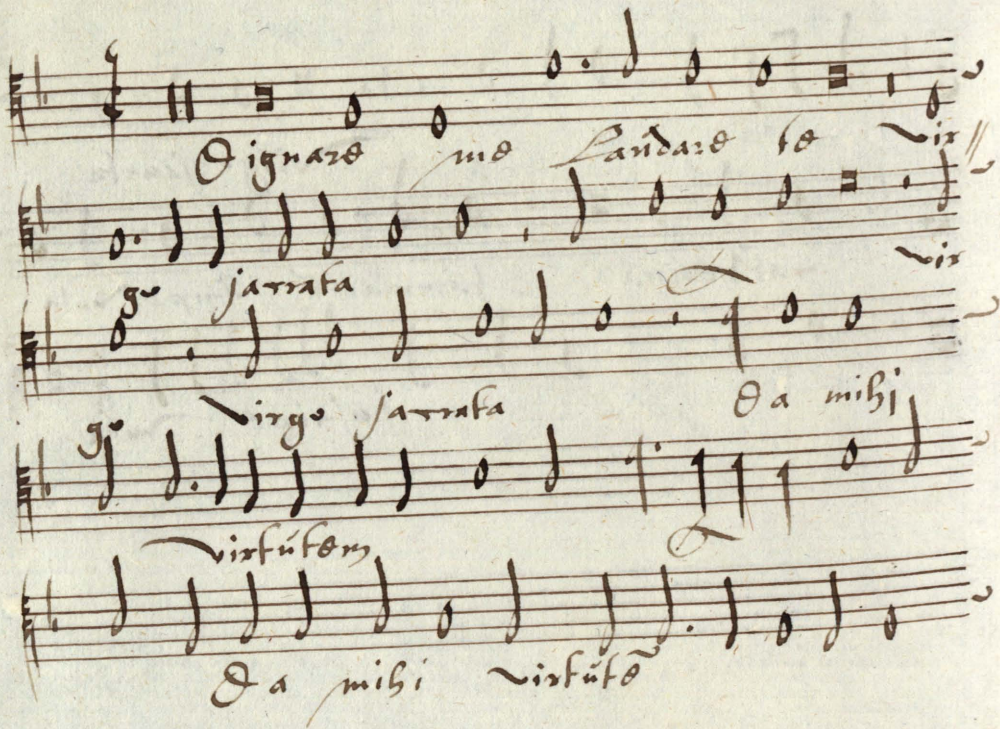 Dignare me Laudare te Vir
go sacrata vir
go Virgo sacrata Da mihi
virtutem
Da mihi virtutẽ